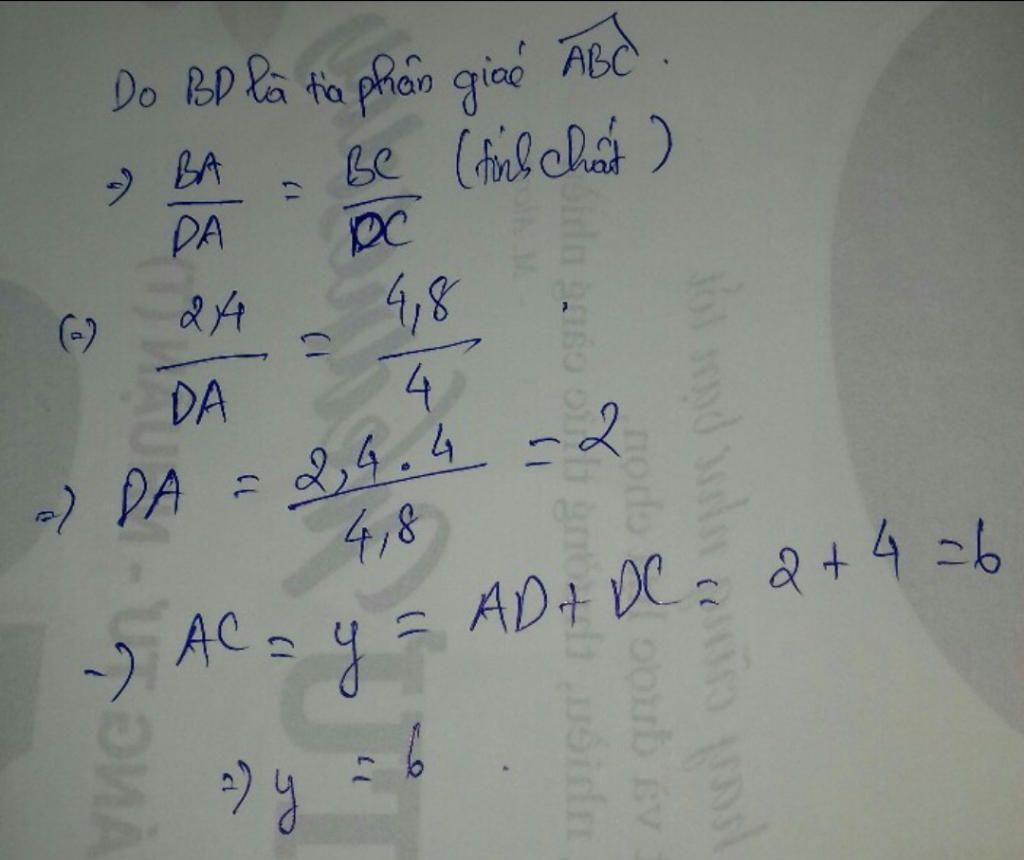 Do BD là tia phân giác ABC.
=> BA/DA = BC/DC (tính chất)
(=) 2,4/DA = 4,8/4
=> DA = 2,4.4/4,8 = 2
=> AC = y = AD + DC = 2 + 4 = 6
=> y = 6.